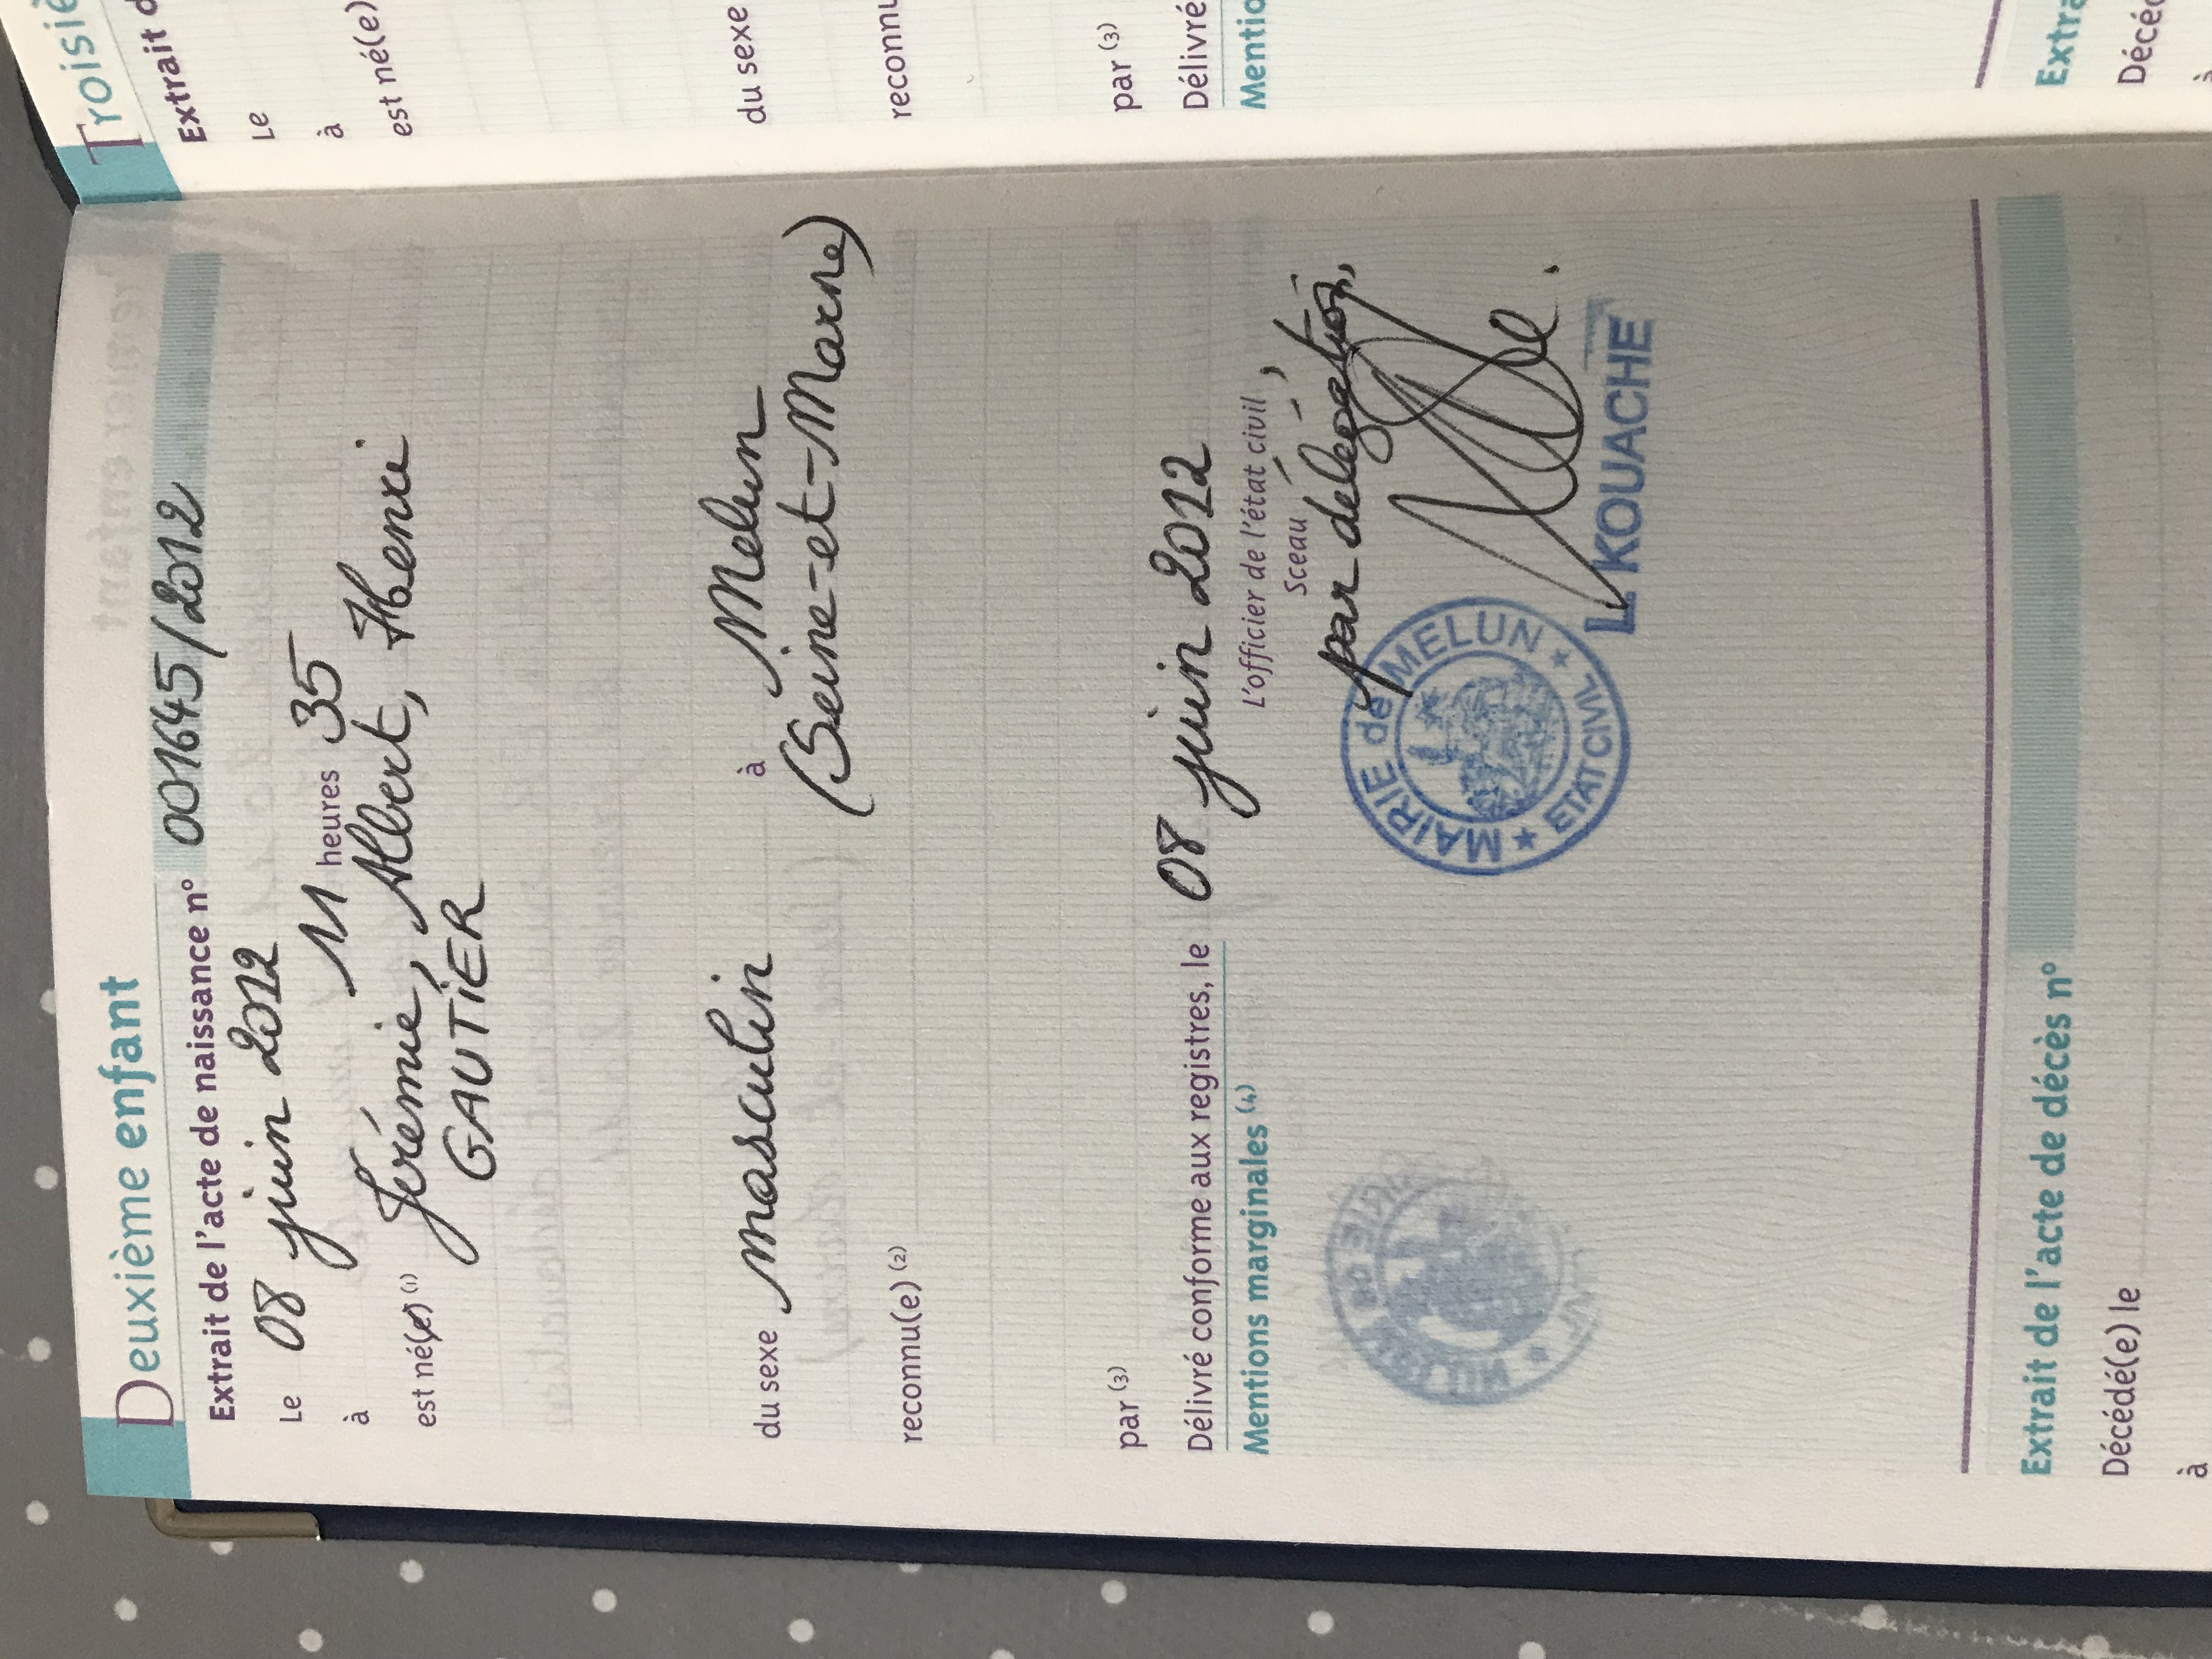 Deuxième enfant
Extrait de l'acte de naissance n° 001645/2012
Le 08 juin 2012
à 11 heures 35
est né(e) (1) Jérémie, Albert, Henri
GAUTIER
du sexe masculin à Melun
(Seine-et-Marne)
reconnu(e) (2)
par (3)
Délivré conforme aux registres, le 08 juin 2012
Mentions marginales (4)
L'officier de l'état civil,
Sceau
par délégation,
MAIRIE de MELUN
★ ETAT CIVIL ★
KOUACHE
Extrait de l'acte de décès n°
Décédé(e) le
à
Troisiè
Extrait d
Le
à
est né(e)
du sexe
reconnu
par (3)
Délivré
Mentio
Extra
Décéd
à